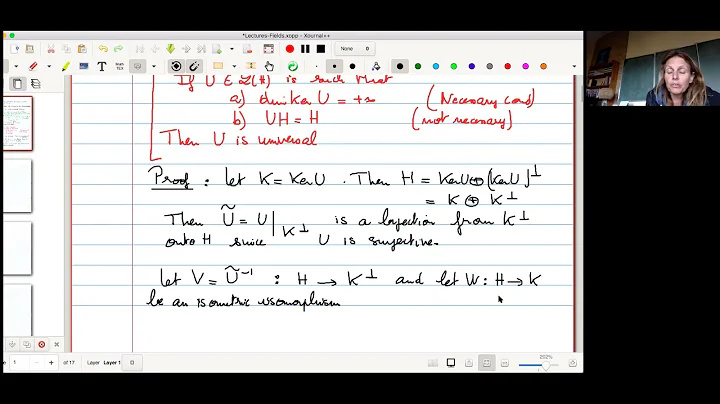 *Lectures-Fields.xopp - Xournal++
None
TEX
MATH
If U ∈ L(H) is such that
a) dim ker U = +∞ (Necessary cond)
b) UH = H (not necessary)
Then U is universal
Proof : Let K = Ker U . Then H = Ker U ⊕ (Ker U)⊥
= K ⊕ K⊥
Then Ũ = U|K⊥ is a bijection from K⊥
onto H since U is surjective.
Let V = Ũ⁻¹ : H → K⊥ and let W : H → K
be an isometric isomorphism
1 of 17 Layer Layer 1
202%